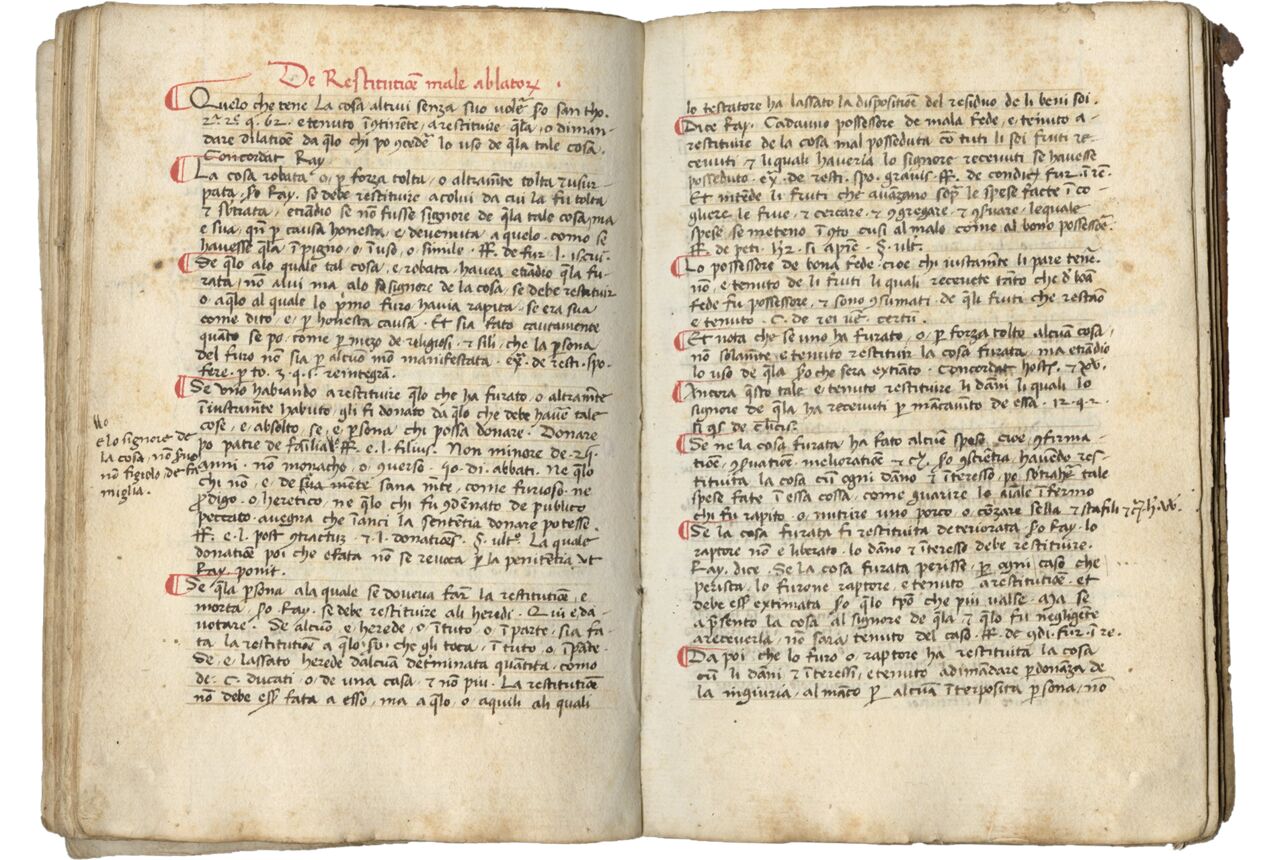 De Restitutiõe male ablatoꝝ .
Quelo che tene La cosa altrui senza suo voler̃ . so san tho.
2ª 2ᵉ q. 62 . e tenuto i᷈ɔtine᷈te, a restituire q᷈la, o diman
dare dilatiõe da q᷈lo chi po ɔceder̃ lo uso de q᷈la tale cosa.
Concordat Ray
La cosa robata . o, p forza tolta, o altram᷈te tolta ⁊ usur
pata, so Ray. se debe restituire a colui da cui la fu tolta
⁊ sᵒtrata, etia᷈dio se nõ fusse signore de q᷈la tale cosa, ma
e sua, qñ p causa honesta, e devenuta a quelo . como se
havesse q᷈la i᷈ pigno, o i᷈ uso, o simile . ff. de fur. l.
De q᷈lo alo quale tal cosa, e robata havea etia᷈dio q᷈la fu
rata, nõ alui ma alo signore de la cosa, se debe restituir
o aq᷈lo al quale lo p᷈mo furo havia rapita, se era sua
come dito, e, p honesta causa . Et sia fato cautamente
qua᷈to se po, come p mezo de religiosi, ⁊ sili, che la p᷈sona
del furo nõ sia p alcuo mõ manifestata . ex᷈. de resti. spo.
fere. p to. 3. q. 5. reintegra᷈.
De uno habiando a restituire q᷈lo che ha furato, o altram᷈te
i᷈iustam᷈te habuto, gli fi donato da q᷈lo che debe haver̃ tale
cose, e absolto, se, e p᷈sona chi possa donare . Donare
po patre de familia ff. e. l. filius. Non minore de
anni . nõ monacho, o ɔverso . di. abbati. Ne q᷈lo
chi nõ, e de sua mete᷈ sana m᷈te, come furioso. ne
prodigo . o heretico, ne q᷈lo chi fu ɔde᷈nato de publico
peccato, avegna che i᷈anci la sente᷈tia donare potesse.
ff. e. l. post ɔtractuʒ ⁊ l. donatiões . §. ultᵒ. La quale
donatiõe poi che e fata nõ se revoca p la penite᷈tia, ut
Ray. ponit.
De q᷈la p᷈sona ala quale se doveva far̃ la restitutiõe, e
morta, so Ray. se debe restituire ali heredi . Qui e da
notare . Se alcuo, e herede, o i᷈ tuto, o i᷈ parte, sia fa
ta la restitutiõe a q᷈lo, so che gli toca, i᷈ tuto, o i᷈ pate.
Se, e lassato herede d'alcua᷈ det᷈minata qua᷈tita, como
de . C. ducati, o de una casa, ⁊ nõ piu . La restitutiõe
nõ debe ess᷈ fata a esso, ma a q᷈lo, o aquili ali quali
e lo signore de
la cosa, nõ suo
nõ figiolo, de fa
miglia.
lo testatore ha lassato la dispositiõe del residuo de li beni soi .
Dice Ray. Cadauno possessore de mala fede, e tenuto a
restituire de la cosa mal posseduta cõ tuti li soi fruti re
cevuti, ⁊ li quali haveria lo signore recevuti se havesse
posseduto . ex᷈. de resti. spo. gravis. ff. de condic᷈ fur. i᷈ re.
Et inte᷈de li fruti che ava᷈zano sop᷈ le spese facte i᷈ co
gliere le frue, ⁊ cercare, ⁊ ɔgregare, ⁊ ɔservare, lequale
spese se meteno i᷈ cusi al malo come al bono possessoe᷈.
ff. de peti. h᷈r. si apie᷈. §. ult.
Lo possessore de bona fede . cioe chi iustam᷈te li pare tene᷈.
nõ, e tenuto de li fruti li quali recevete ta᷈to che d' boa᷈
fede fu possessore, ⁊ sono ɔsumati . de q᷈li fruti che resta᷈o
e tenuto . C. de rei ve᷈. certu᷈ .
Et nota che se uno ha furato, o, p forza tolto alcua᷈ cosa,
nõ solam᷈te, e tenuto restituir̃ la cosa furata, ma etia᷈dio
lo uso de q᷈la so che sera extiã᷈to . Concordat host.
Ancora q᷈sto tale e tenuto restituire li da᷈ni li quali lo
signore de q᷈la ha recevuti p ma᷈cam᷈to de essa . 12. q. 2.
si qs de clicis.
Se ne la cosa furata ha fato alcue᷈ spese, cioe, ɔfirma
tiõe, ɔservatiõe, melioratiõe ⁊ c᷈. so ɔscie᷈tia, have᷈do res
tituita la cosa cu᷈ ogni da᷈no ⁊ i᷈teresso, po sᵒtrahe᷈ tale
spese fate i᷈ essa cossa, come guarire lo aiale i᷈fermo
chi fu rapito, o nutrire uno porco, o cõzare sella, ⁊ stafili,
Se la cosa furata fi restituita deteriorata, so Ray. lo
raptore nõ e liberato . lo da᷈no ⁊ i᷈teresso debe restituire.
Ray. dice . Se la cosa furata perisse, p ogni caso che
perisca, lo furone raptore, e tenuto a restitutiõe . et
debe ess᷈ extimata so q᷈lo tp᷈o che piu valse . Ma se
a p᷈sento la cosa al signore de q᷈la, ⁊ q᷈lo fu negligente
a receverla, nõ sara tenuto del caso . ff. de ɔdi. fur. i re.
Da poi che lo furo o, raptore ha restituita la cosa
cu᷈ li da᷈ni ⁊ i᷈teressi, e tenuto adima᷈dare p᷈dona᷈za de
la ingiuria, al ma᷈co p alcua᷈ i᷈terposita p᷈sona, nõ